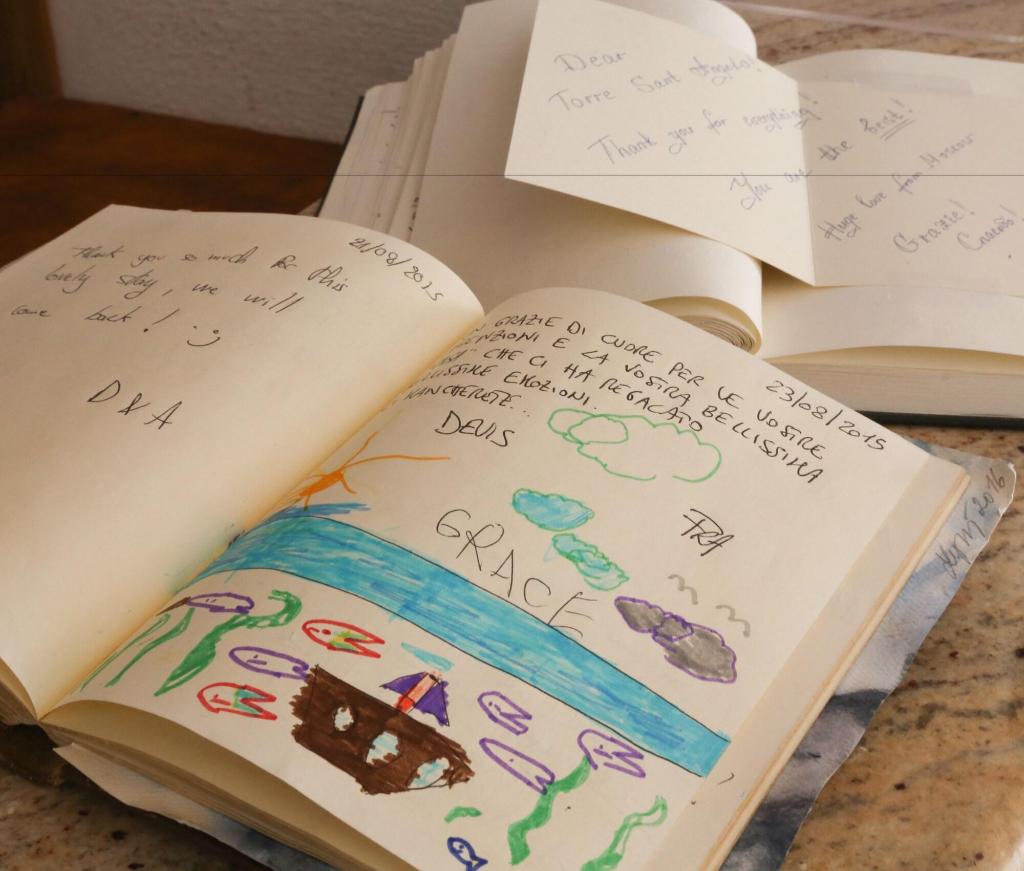 Dear
Torre Sant Angelo!
Thank you for everything!
You are the best!
Huge love from
Grazie!
Спасибо!
21/08/2015
thank you so much for this
lovely stay, we will
come back! :)
D & A
23/08/2015
GRAZIE DI CUORE PER LE VOSTRE
E LA VOSTRA BELLISSIMA
CHE CI HA REGALATO
EMOZIONI.
MANCHERETE...
DEVIS
FRA
GRACE
2016